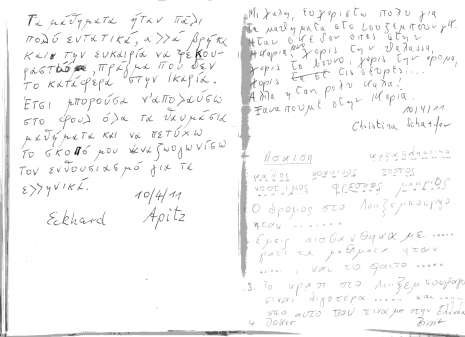 Τα μαθήματα ήταν πάλι
πολύ εντατικά, αλλά βρήκα
και την ευκαιρία να ξεκου-
ραστώ, πράγμα που δεν
το κατάφερα στην Ικαρία.
Έτσι μπορούσα ν'απολαύσω
στο φουλ όλα τα θαυμάσια
μαθήματα και να πετύχω
το σκοπό μου ναζωογωνίσω
τον ενθουσιασμό για τα
ελληνικά.
10/4/11
Eckhard Apitz
Μιχάλη, Ευχαριστώ πολύ για
τα μαθήματα στο Λουξεμπουργκ.
Ήταν σχεδόν όπως στην
Ικαρία χωρίς την θάλασσα,
χωρίς το βουνό, χωρίς την δρόμο,
χωρίς τις
Αλλά ήταν πολύ καλά!
Ξαναπούμε στην Ικαρία.
10/4/11
Christina Schaefer
Άσκηση
καλός κόκκινος
νόστιμος φρέσκος μικρός
Ο δρόμος στο Λουξεμπουργκο
ήταν ........
Εμείς αισθανθήκαμε .....
γιατί τα μαθήματα ήταν
....., και το φαητο .....
3. Το κρασί στο Λουξεμπούργο
είναι λιγότερο ..... και .....
απο αυτο που πίναμε στην Ελλάδα
4.